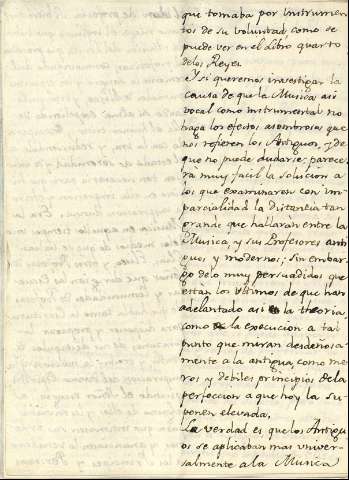 que tomaba por instrumen
tos de su voluntad, como se
puede ver en el Libro quarto
de los Reyes.
Y si queremos investigar la
causa de que la Musica, asi
vocal como instrumental no
haga los efectos asombrosos que
nos refieren los Antiguos, y de
que no puede dudarse; parece
rá muy facil la solucion a
los que examinaren con im
parcialidad la distancia tan
grande que hallarán entre la
Musica, y sus Profesores anti
guos y modernos; sin embar
go de lo muy persuadidos que
estan los ultimos de que han
adelantado asi la theoria,
como la execucion a tal
punto que miran desdeñosa
mente a la antigua, como me
ros y debiles principios de la
perfeccion a que hoy la su
ponen elevada.
La verdad es que los Antigu
os se aplicaban mas univer
salmente a la Musica